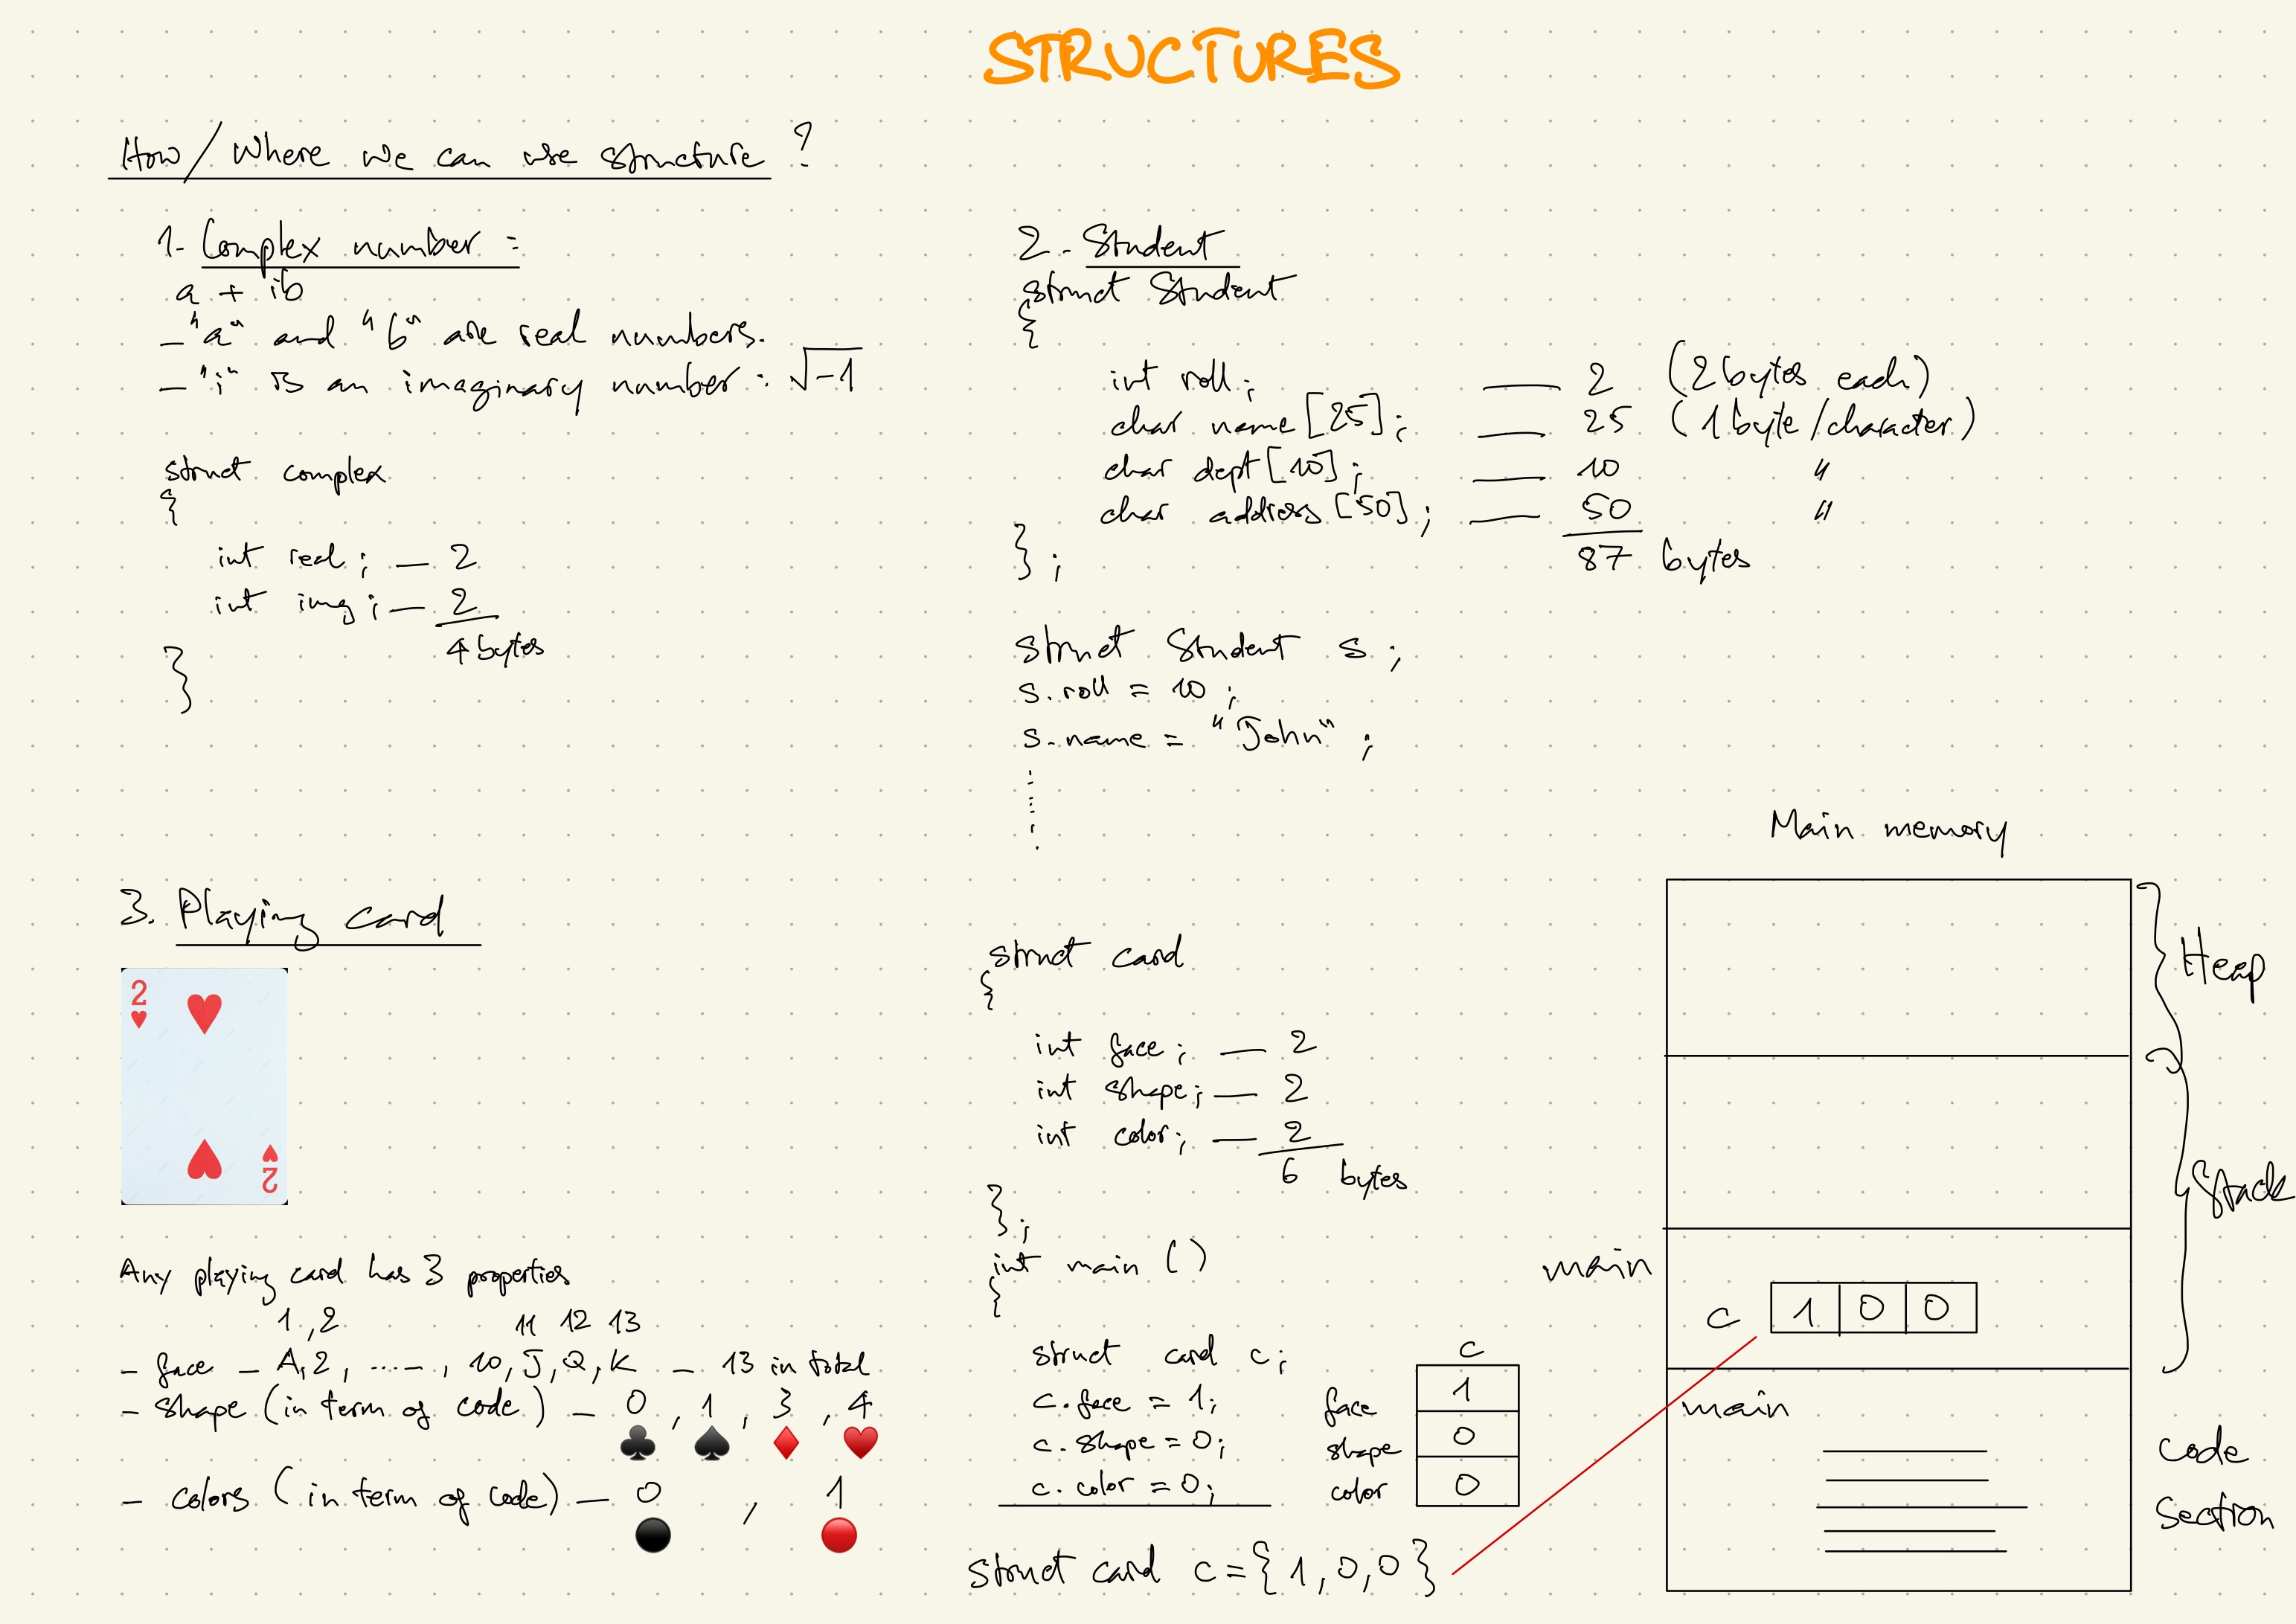 STRUCTURES
How/Where we can use structure ?
1- Complex number :
a + ib
- "a" and "b" are real numbers.
- "i" is an imaginary number : √-1
struct complex
{
int real ; — 2
int img ; — 2
4 bytes
}
2 - Student
struct Student
{
int roll ; — 2 (2 bytes each)
char name [25] ; — 25 (1 byte/character)
char dept [10] ; — 10 "
char address [50] ; — 50 "
87 bytes
} ;
struct Student s ;
s.roll = 10 ;
s.name = "John" ;
3. Playing card
2
2
Any playing card has 3 properties
1 , 2 11 12 13
- face - A, 2, ....., 10, J, Q, K - 13 in total
- shape (in term of code) - 0 , 1 , 3 , 4
♣ ♠ ♦ ♥
- colors (in term of code) - 0 , 1
struct card
{
int face ; — 2
int shape ; — 2
int color ; — 2
6 bytes
} ;
int main ()
{
struct card c ;
c.face = 1;
c.shape = 0;
c.color = 0;
c
face 1
shape 0
color 0
struct card c = { 1, 0, 0 }
Main memory
Heap
Stack
main
c 1 0 0
main
Code
Section